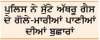 ਪੁਲਿਸ ਨੇ ਸੁੱਟੇ ਅੱਥਰੂ ਗੈਸ
ਦੇ ਗੋਲੇ-ਮਾਰੀਆਂ ਪਾਣੀਆਂ
ਦੀਆਂ ਬੁਛਾਰਾਂ